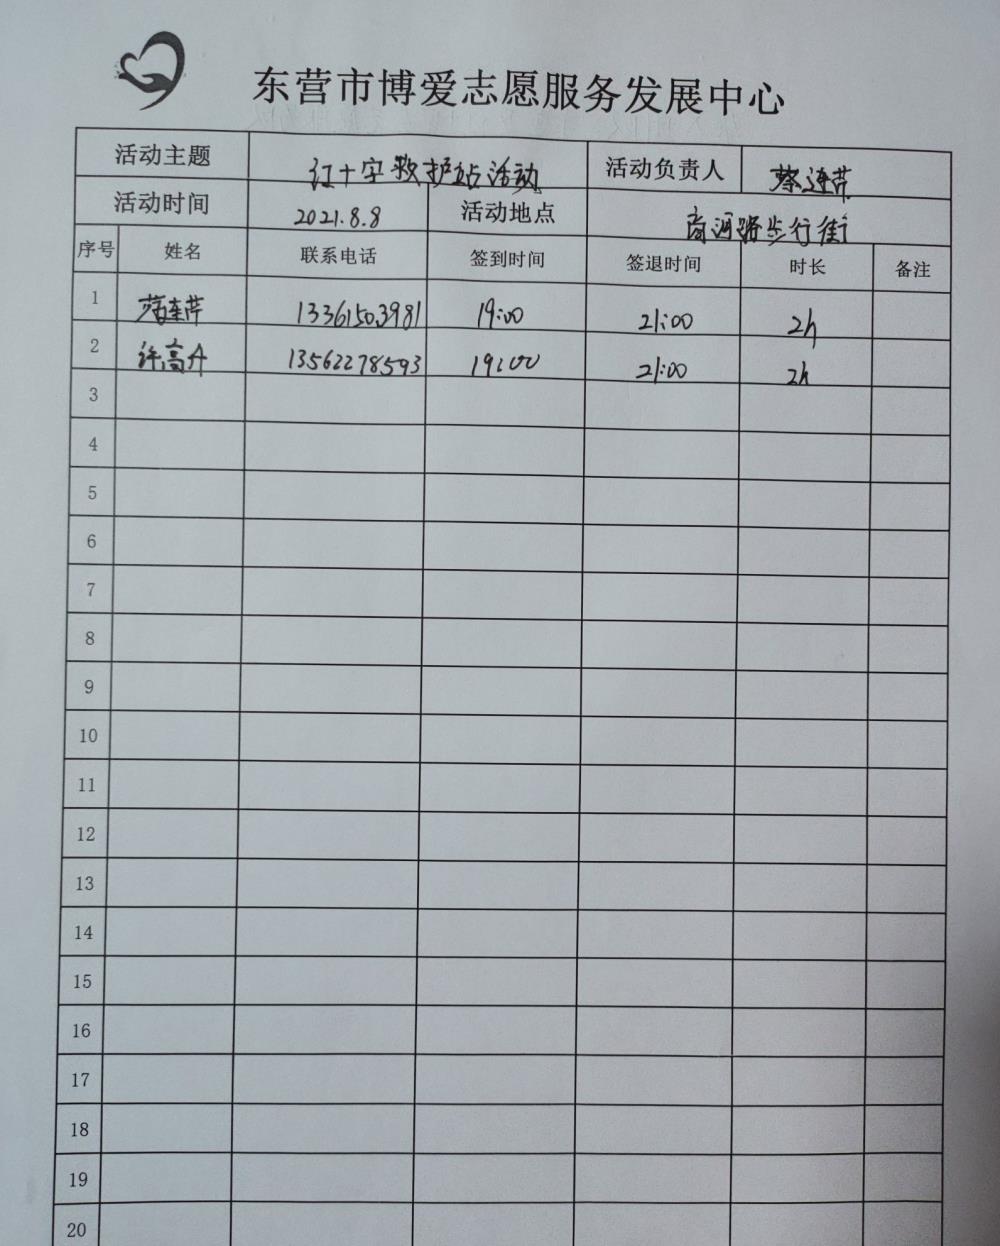 东营市博爱志愿服务发展中心
活动主题 红十字救护站活动 活动负责人
活动时间 2021.8.8 活动地点 商河路步行街
序号 姓名 联系电话 签到时间 签退时间 时长 备注
1 13361503981 19:00 21:00 2h
2 许高升 13562278593 19:00 21:00 2h
3
4
5
6
7
8
9
10
11
12
13
14
15
16
17
18
19
20